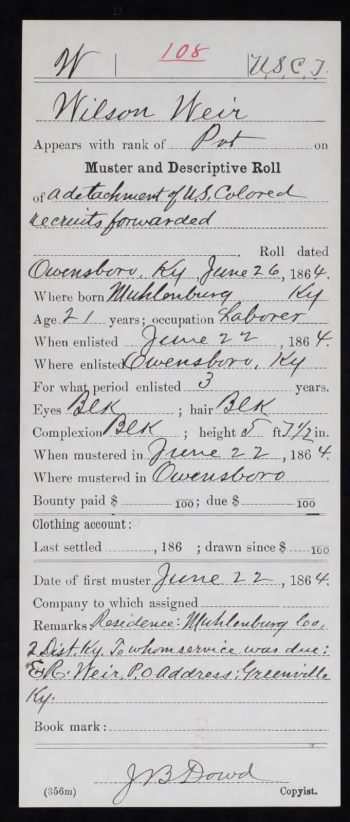 W | 108 | U.S.C.T.
Wilson Weir
Appears with rank of Pvt on
Muster and Descriptive Roll
of a detachment of U.S. Colored
recruits forwarded
. Roll dated
Owensboro, Ky June 26, 1864.
Where born Muhlenburg Ky
Age 21 years; occupation Laborer
When enlisted June 22, 1864.
Where enlisted Owensboro, Ky
For what period enlisted 3 years.
Eyes Blk; hair Blk
Complexion Blk; height 5 ft 7 1/2 in.
When mustered in June 22, 1864.
Where mustered in Owensboro
Bounty paid $ 100; due $ 100
Clothing account:
Last settled , 186 ; drawn since $ 100
Date of first muster June 22, 1864.
Company to which assigned
Remarks: Residence: Muhlenburg Co,
2 Dist. Ky. To whom service was due:
E.R. Weir, P.O address: Greenville
Ky.
Book mark:
J B Dowd
(356m) Copyist.